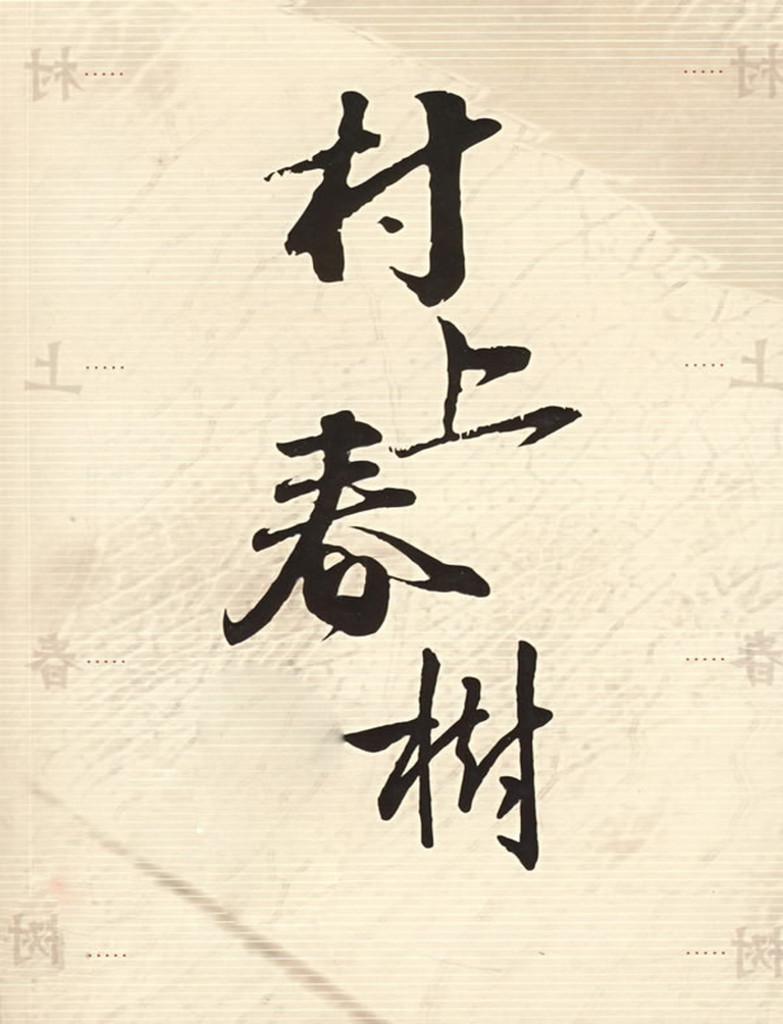 村上春樹
村上春树
村上春树